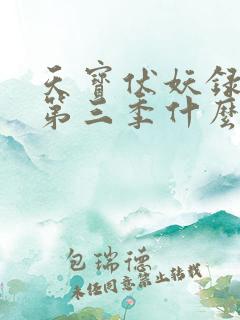 天寶伏妖録
第三季什麽
包瑞德
未经同意禁止转载